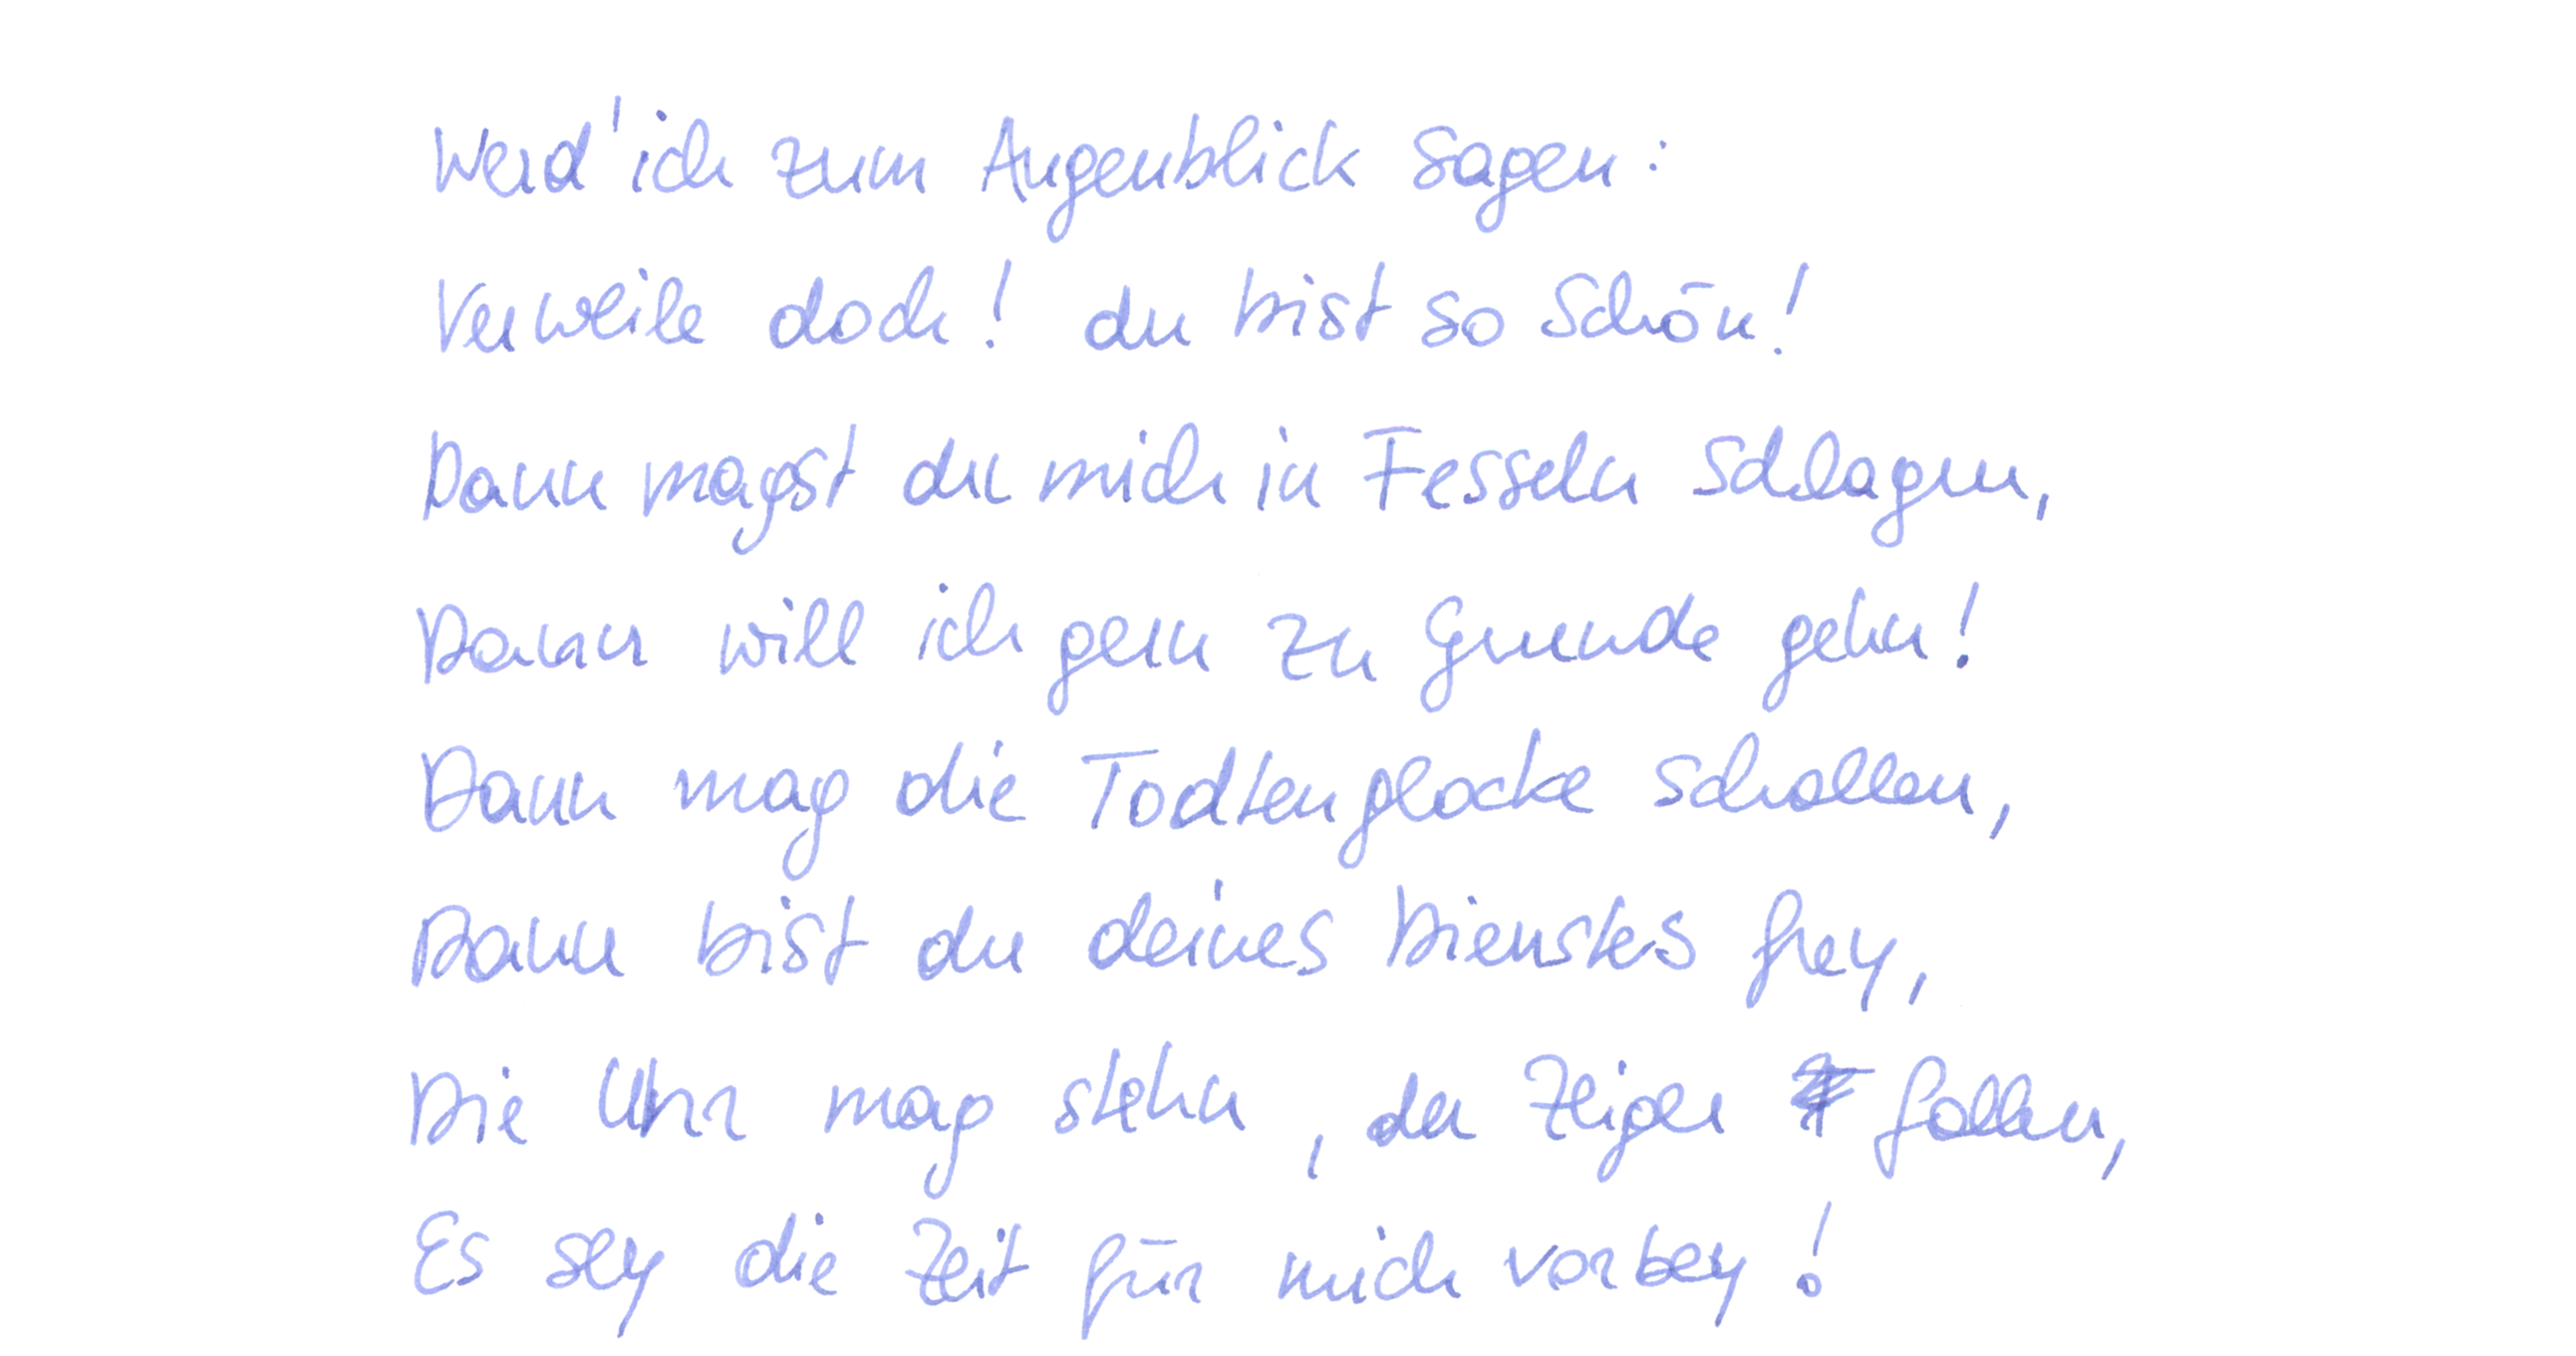 Werd' ich zum Augenblick sagen:
Verweile doch! du bist so schön!
Dann magst du mich in Fesseln schlagen,
Dann will ich gern zu Grunde gehn!
Dann mag die Todtenglocke schallen,
Dann bist du deines Dienstes frey,
Die Uhr mag stehn, der Zeiger fallen,
Es sey die Zeit für mich vorbey!